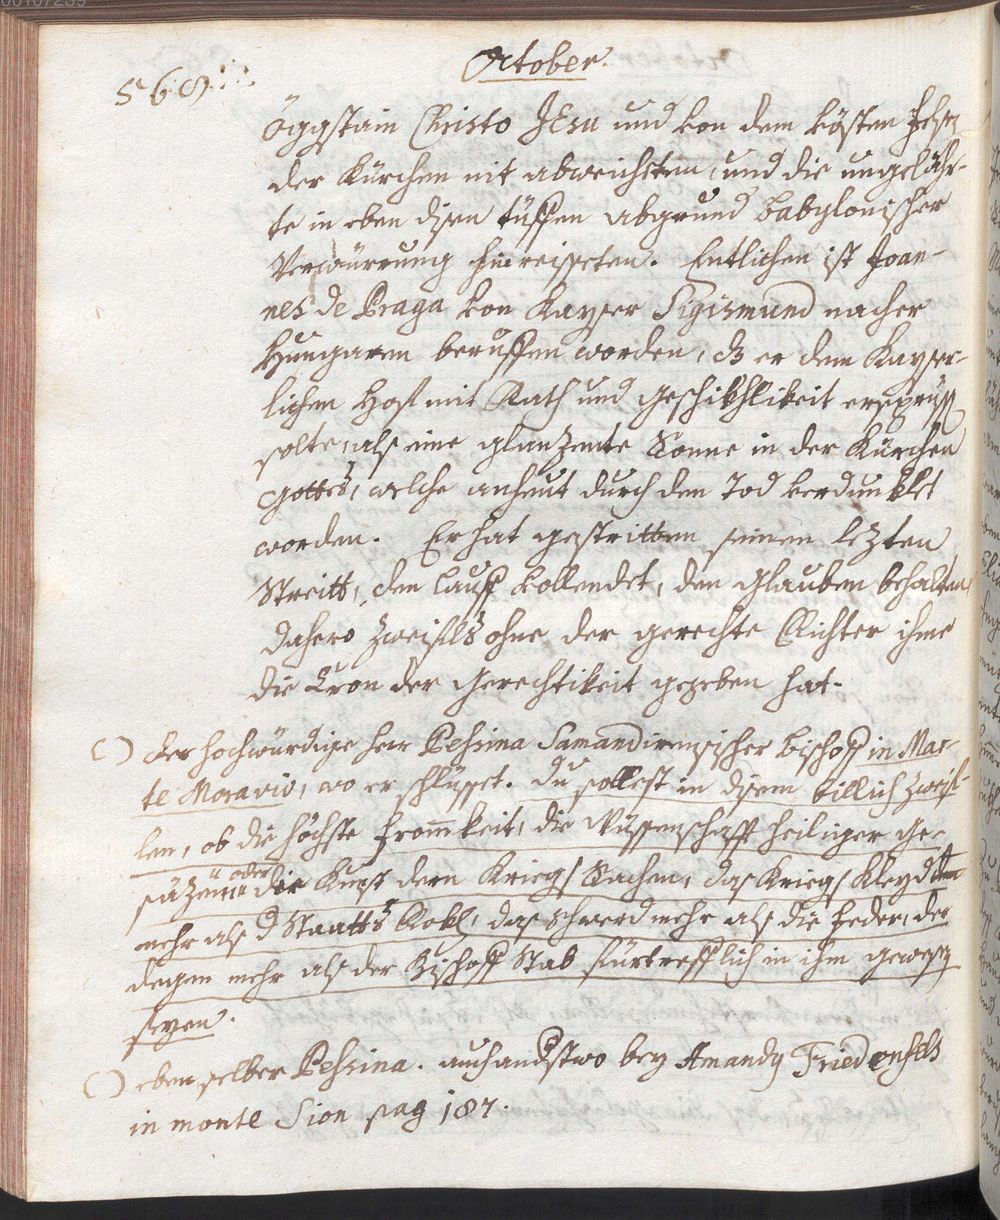 00107289
October.
568
Öggstain Christo JEsu und von dem vösten Felsen
der Kürchen nit abweicheten, und die ungelähr-
te in eben disen tüffen abgrund Babylonischer
Verwürrung hinreisseten. Entlichen ist Joan-
nes de Praga von Kayser Sigismund nacher
Hungaren beruffen worden, dz er dem Kayser-
lichen Hoff mit Rath und geschikhlikeit
solte, als eine glanzente Sonne in der Kürchen
Gottes, welche anheut durch den Tod verdunklet
worden. Er hat gestritten seinen lezten
Streitt, den lauff vollendet, den glauben behalten,
dahero zweifels ohne der gerechte Richter ihme
die Cron der Gerechtikeit gegeben hat.
( ) der hochwürdige herr Pessina Samandirensischer Bischoff in Mar-
te Moravio, wo er schlüsset. du sollest in disem billich zweif-
len, ob die höchste frommkeit, die Wüssenschafft heiliger Ge-
säzen, oder die Kunst dern Kriegs Sachen, das Kriegs Kleyd
mehr als d Staatts Rokh, das schwerd mehr als die feder, der
degen mehr als der Bischoff Stab fürtrefflich in ihm gewesen
seyen.
( ) eben selber Pessina. auch anderstwo bey Amandy Friedenfels
in monte Sion pag 187.